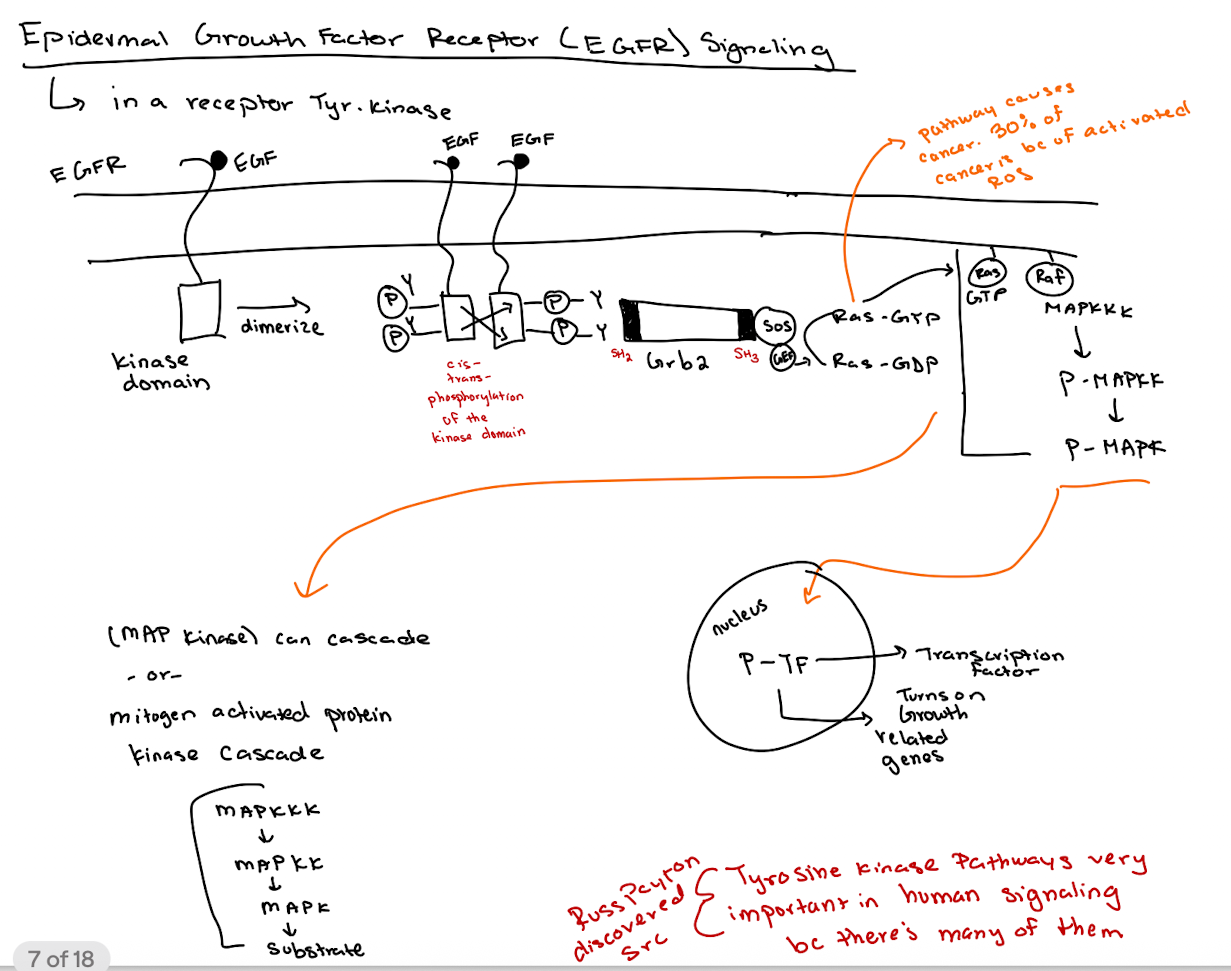 Epidermal Growth Factor Receptor (EGFR) Signaling
↳ in a receptor Tyr. kinase
pathway causes
cancer. 30% of
cancer is bc of activated
ROS
EGFR
EGF
EGF
EGF
kinase
domain
dimerize
P Y
P Y
P - Y
P - Y
cis-
trans-
phosphorylation
of the
kinase domain
SH2
Grb2
SH3
SOS
GEF
Ras-GTP
Ras-GDP
Ras
GTP
Raf
MAPKKK
↓
P-MAPKK
↓
P-MAPK
(MAP kinase) can cascade
- or -
mitogen activated protein
kinase cascade
MAPKKK
↓
MAPKK
↓
MAPK
↓
Substrate
nucleus
P-TF → Transcription
Factor
Turns on
Growth
related
genes
Russ Peyton
discovered
Src
Tyrosine kinase Pathways very
important in human signaling
bc there's many of them
7 of 18